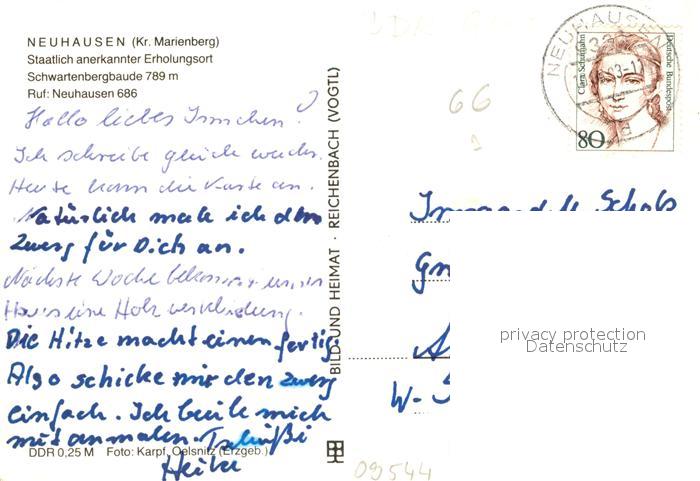 NEUHAUSEN (Kr. Marienberg)
Staatlich anerkannter Erholungsort
Schwartenbergbaude 789 m
Ruf: Neuhausen 686
Hallo liebes Irmchen!
Ich schreibe gleich wieder.
Heute kam die Karte an.
Natürlich male ich den
Zwerg für Dich an.
Nächste Woche bekommt unser
Haus eine Holzverkleidung.
Die Hitze macht einen fertig.
Also schicke mir den Zwerg
einfach. Ich beeile mich
mit anmalen. Tschüßi
Heike
DDR 0,25 M Foto: Karpf, Oelsnitz (Erzgeb.)
BILD UND HEIMAT · REICHENBACH (VOGTL)
66
NEUHAUSEN
Clara Schumann
Deutsche Bundespost
80
W-
privacy protection
Datenschutz
09544